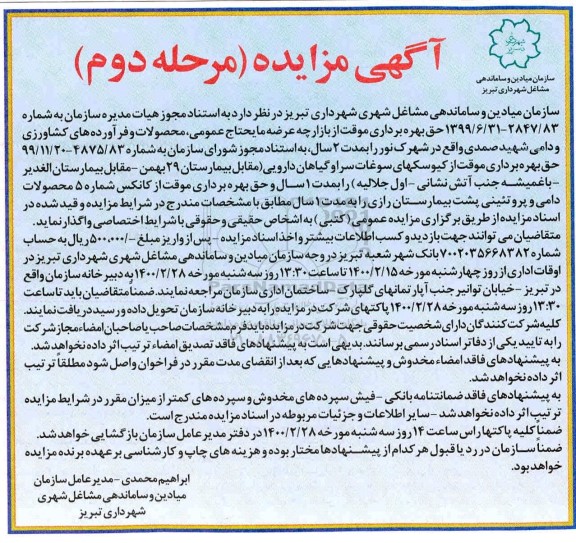 شهرداری
تبریز
سازمان میادین و ساماندهی
مشاغل شهرداری تبریز
آگهی مزایده (مرحله دوم)
سازمان میادین و ساماندهی مشاغل شهری شهرداری تبریز در نظر دارد به استناد مجوز هیات مدیره سازمان به شماره
۱۳۹۹/۶/۳۱-۲۸۴۷/۸۳ حق بهره برداری موقت از بازارچه عرضه مایحتاج عمومی، محصولات و فرآورده های کشاورزی
و دامی شهید صمدی واقع در شهرک نور را بمدت ۲ سال، به استناد مجوز شورای سازمان به شماره ۴۸۷۵/۸۳-۹۹/۱۱/۲۰
حق بهره برداری موقت از کیوسکهای سوغات سرا و گیاهان دارویی (مقابل بیمارستان ۲۹ بهمن - مقابل بیمارستان الغدیر
- باغمیشه جنب آتش نشانی - اول جلالیه ) را بمدت ۱ سال و حق بهره برداری موقت از کانکس شماره ۵ محصولات
دامی و پروتئینی پشت بیمارستان رازی را به مدت ۱ سال مطابق با مشخصات مندرج در شرایط مزایده و قید شده در
اسناد مزایده از طریق برگزاری مزایده عمومی (کتبی ) به اشخاص حقیقی و حقوقی با شرایط اختصاصی واگذار نماید.
متقاضیان می توانند جهت بازدید و کسب اطلاعات بیشتر و اخذ اسناد مزایده - پس از واریز مبلغ -/۵۰۰,۰۰۰ ریال به حساب
شماره ۷۰۰۲۰۳۵۶۶۸۳۸۲ بانک شهر شعبه تبریز در وجه سازمان میادین و ساماندهی مشاغل شهری شهرداری تبریز در
اوقات اداری از روز چهارشنبه مورخه ۱۴۰۰/۲/۱۵ تا ساعت ۱۳:۳۰ روز سه شنبه مورخه ۱۴۰۰/۲/۲۸ به دبیرخانه سازمان واقع
در تبریز - خیابان توانیر جنب آپارتمانهای گلپارک - ساختمان اداری سازمان مراجعه نمایند. ضمناً متقاضیان باید تا ساعت
۱۳:۳۰ روز سه شنبه مورخه ۱۴۰۰/۲/۲۸ پاکتهای شرکت در مزایده را به دبیرخانه سازمان تحویل داده و رسید دریافت نمایند.
کلیه شرکت کنندگان دارای شخصیت حقوقی جهت شرکت در مزایده باید فرم مشخصات صاحب یا صاحبان امضاء مجاز شرکت
را به تایید یکی از دفاتر اسناد رسمی برسانند. بدیهی است به پیشنهادهای فاقد تصدیق امضاء ترتیب اثر داده نخواهد شد.
به پیشنهادهای فاقد امضاء مخدوش و پیشنهادهایی که بعد از انقضای مدت مقرر در فراخوان واصل شود مطلقاً ترتیب
اثر داده نخواهد شد.
به پیشنهادهای فاقد ضمانتنامه بانکی - فیش سپرده های مخدوش و سپرده های کمتر از میزان مقرر در شرایط مزایده
ترتیب اثر داده نخواهد شد - سایر اطلاعات و جزئیات مربوطه در اسناد مزایده مندرج است.
ضمناً کلیه پاکتها راس ساعت ۱۴ روز سه شنبه مورخه ۱۴۰۰/۲/۲۸ در دفتر مدیرعامل سازمان بازگشایی خواهد شد.
ضمناً سازمان در رد یا قبول هر کدام از پیشنهادها مختار بوده و هزینه های چاپ و کارشناسی بر عهده برنده مزایده
خواهد بود.
ابراهیم محمدی - مدیرعامل سازمان
میادین و ساماندهی مشاغل شهری
شهرداری تبریز